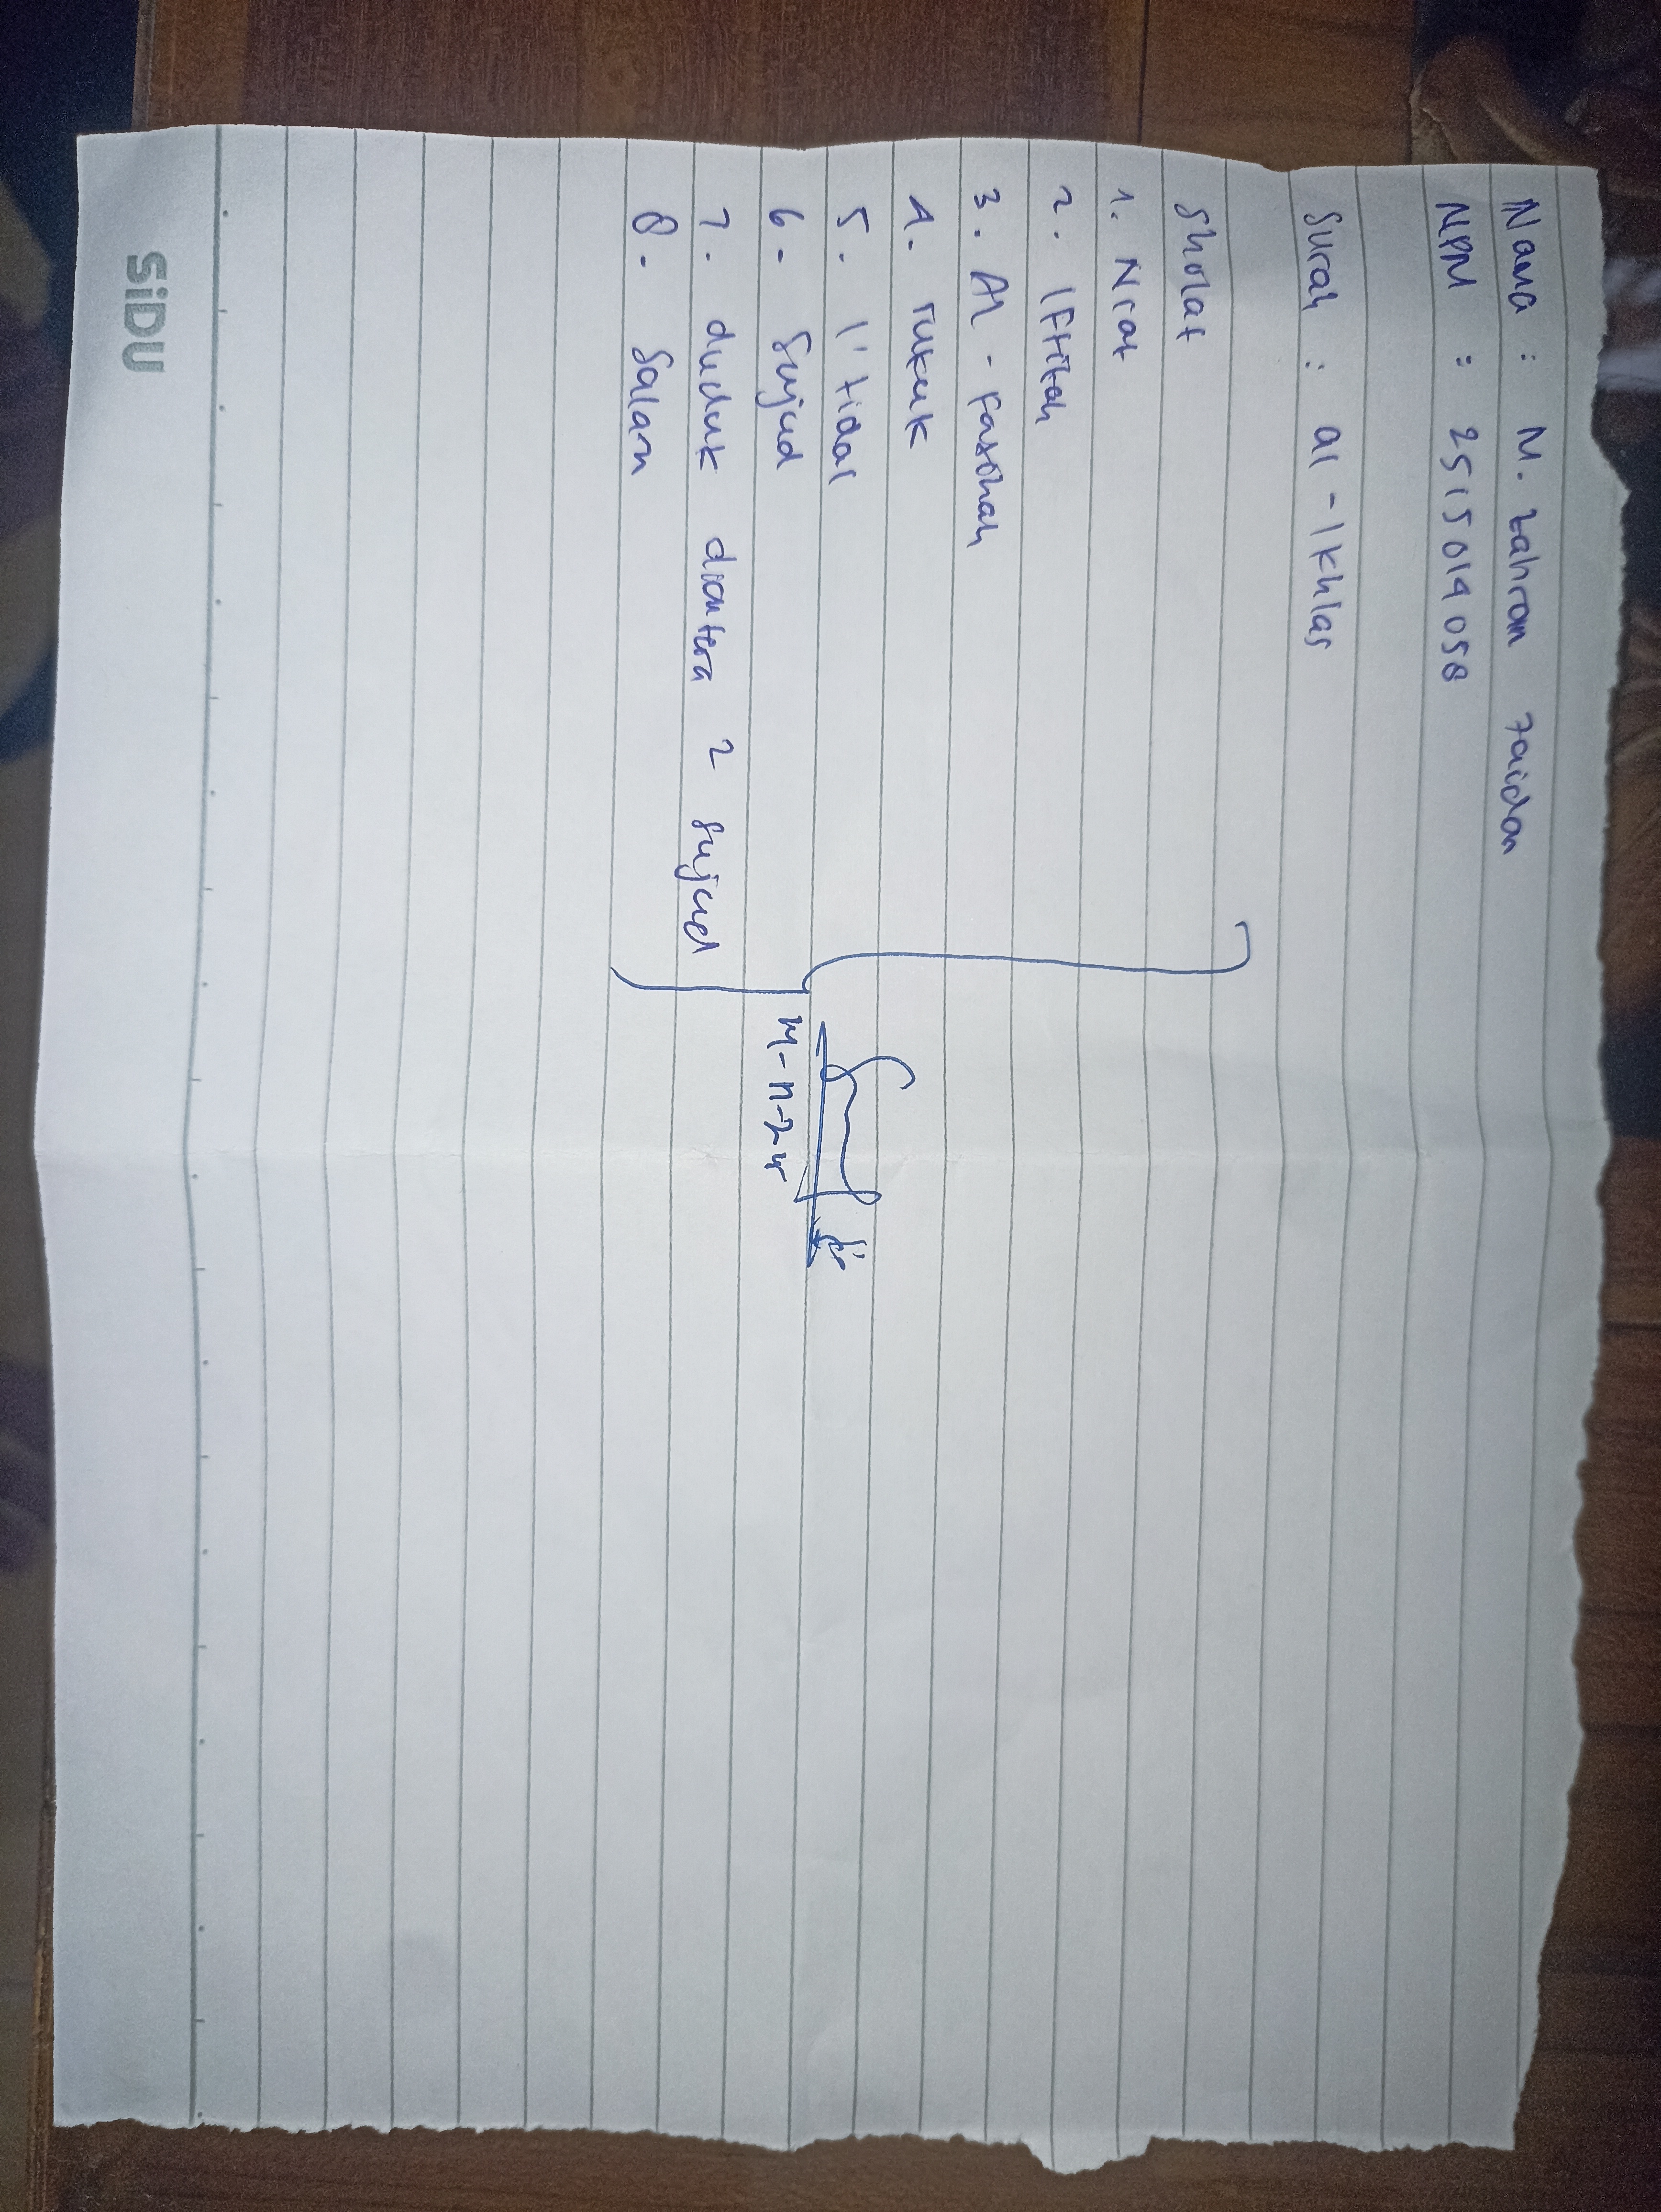 Nama : M. Zahran Zaidan
NPM : 2515014058
Surah : al - Ikhlas
Sholat
1. Niat
2. Iftitah
3. Al - Fatihah
4. rukuk
5. I'tidal
6. Sujud
7. duduk diantara 2 sujud
8. Salam
SiDU